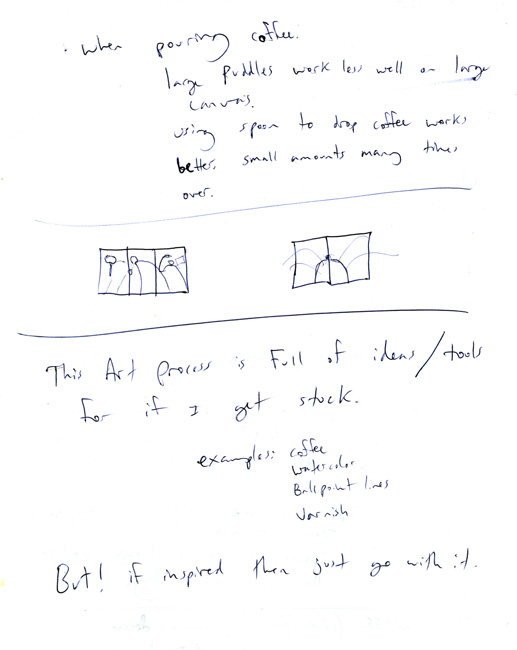 · when pouring coffee.
large puddles work less well on large
canvas.
using spoon to drop coffee works
better. small amounts many times
over.
This Art process is Full of ideas/tools
for if I get stuck.
examples: coffee
watercolor
Ballpoint lines
Varnish
But! if inspired then just go with it.